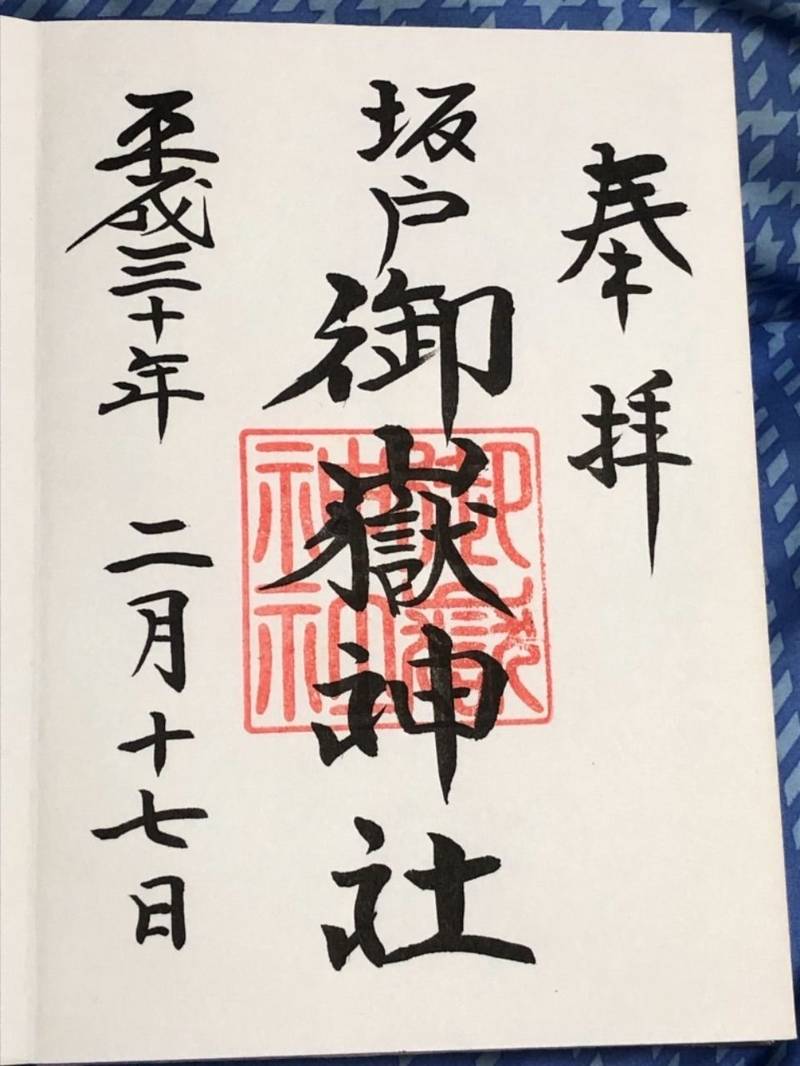 奉拝
坂戸御嶽神社
御嶽神社
平成三十年 二月十七日